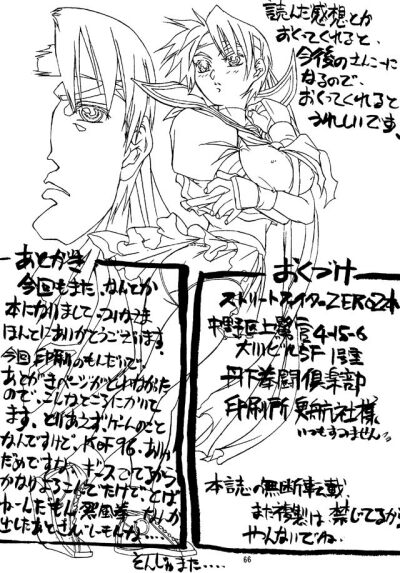 読んだ感想とか
おくってくれると、
今後のさんこーに
なるので、
おくってくれると
うれしいです。
あとがき
今回もまた、なんとか
本になりまして、つきあき
ほんとにありがとうございます。
今回、印刷のもんだいで、
あとがきページがとれなかた
ので、こんなところにかいて
ます。とりあえず、ゲームのこと
なんですけど、KOF96、あれ
だめですな、ギースでてるから
かなりよろこんでたけど、とば
ねーんだもん 烈風拳、なんか
出したあとさいしーもんね…
そんじゃまた....
おくづけ
ストリートファイターZERO2本
中野区上鷺宮4-15-6
大川ビル5F 1号室
丹下拳闘倶楽部
印刷所 航社様
いつもすみません。
本誌の無断転載、
また複製は禁じてるから
やんないでね。
66